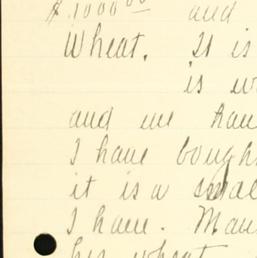 $1000.00 and
Wheat. It is
is w
and we hau
I have bough
it is a smal
I have. Man
his wheat